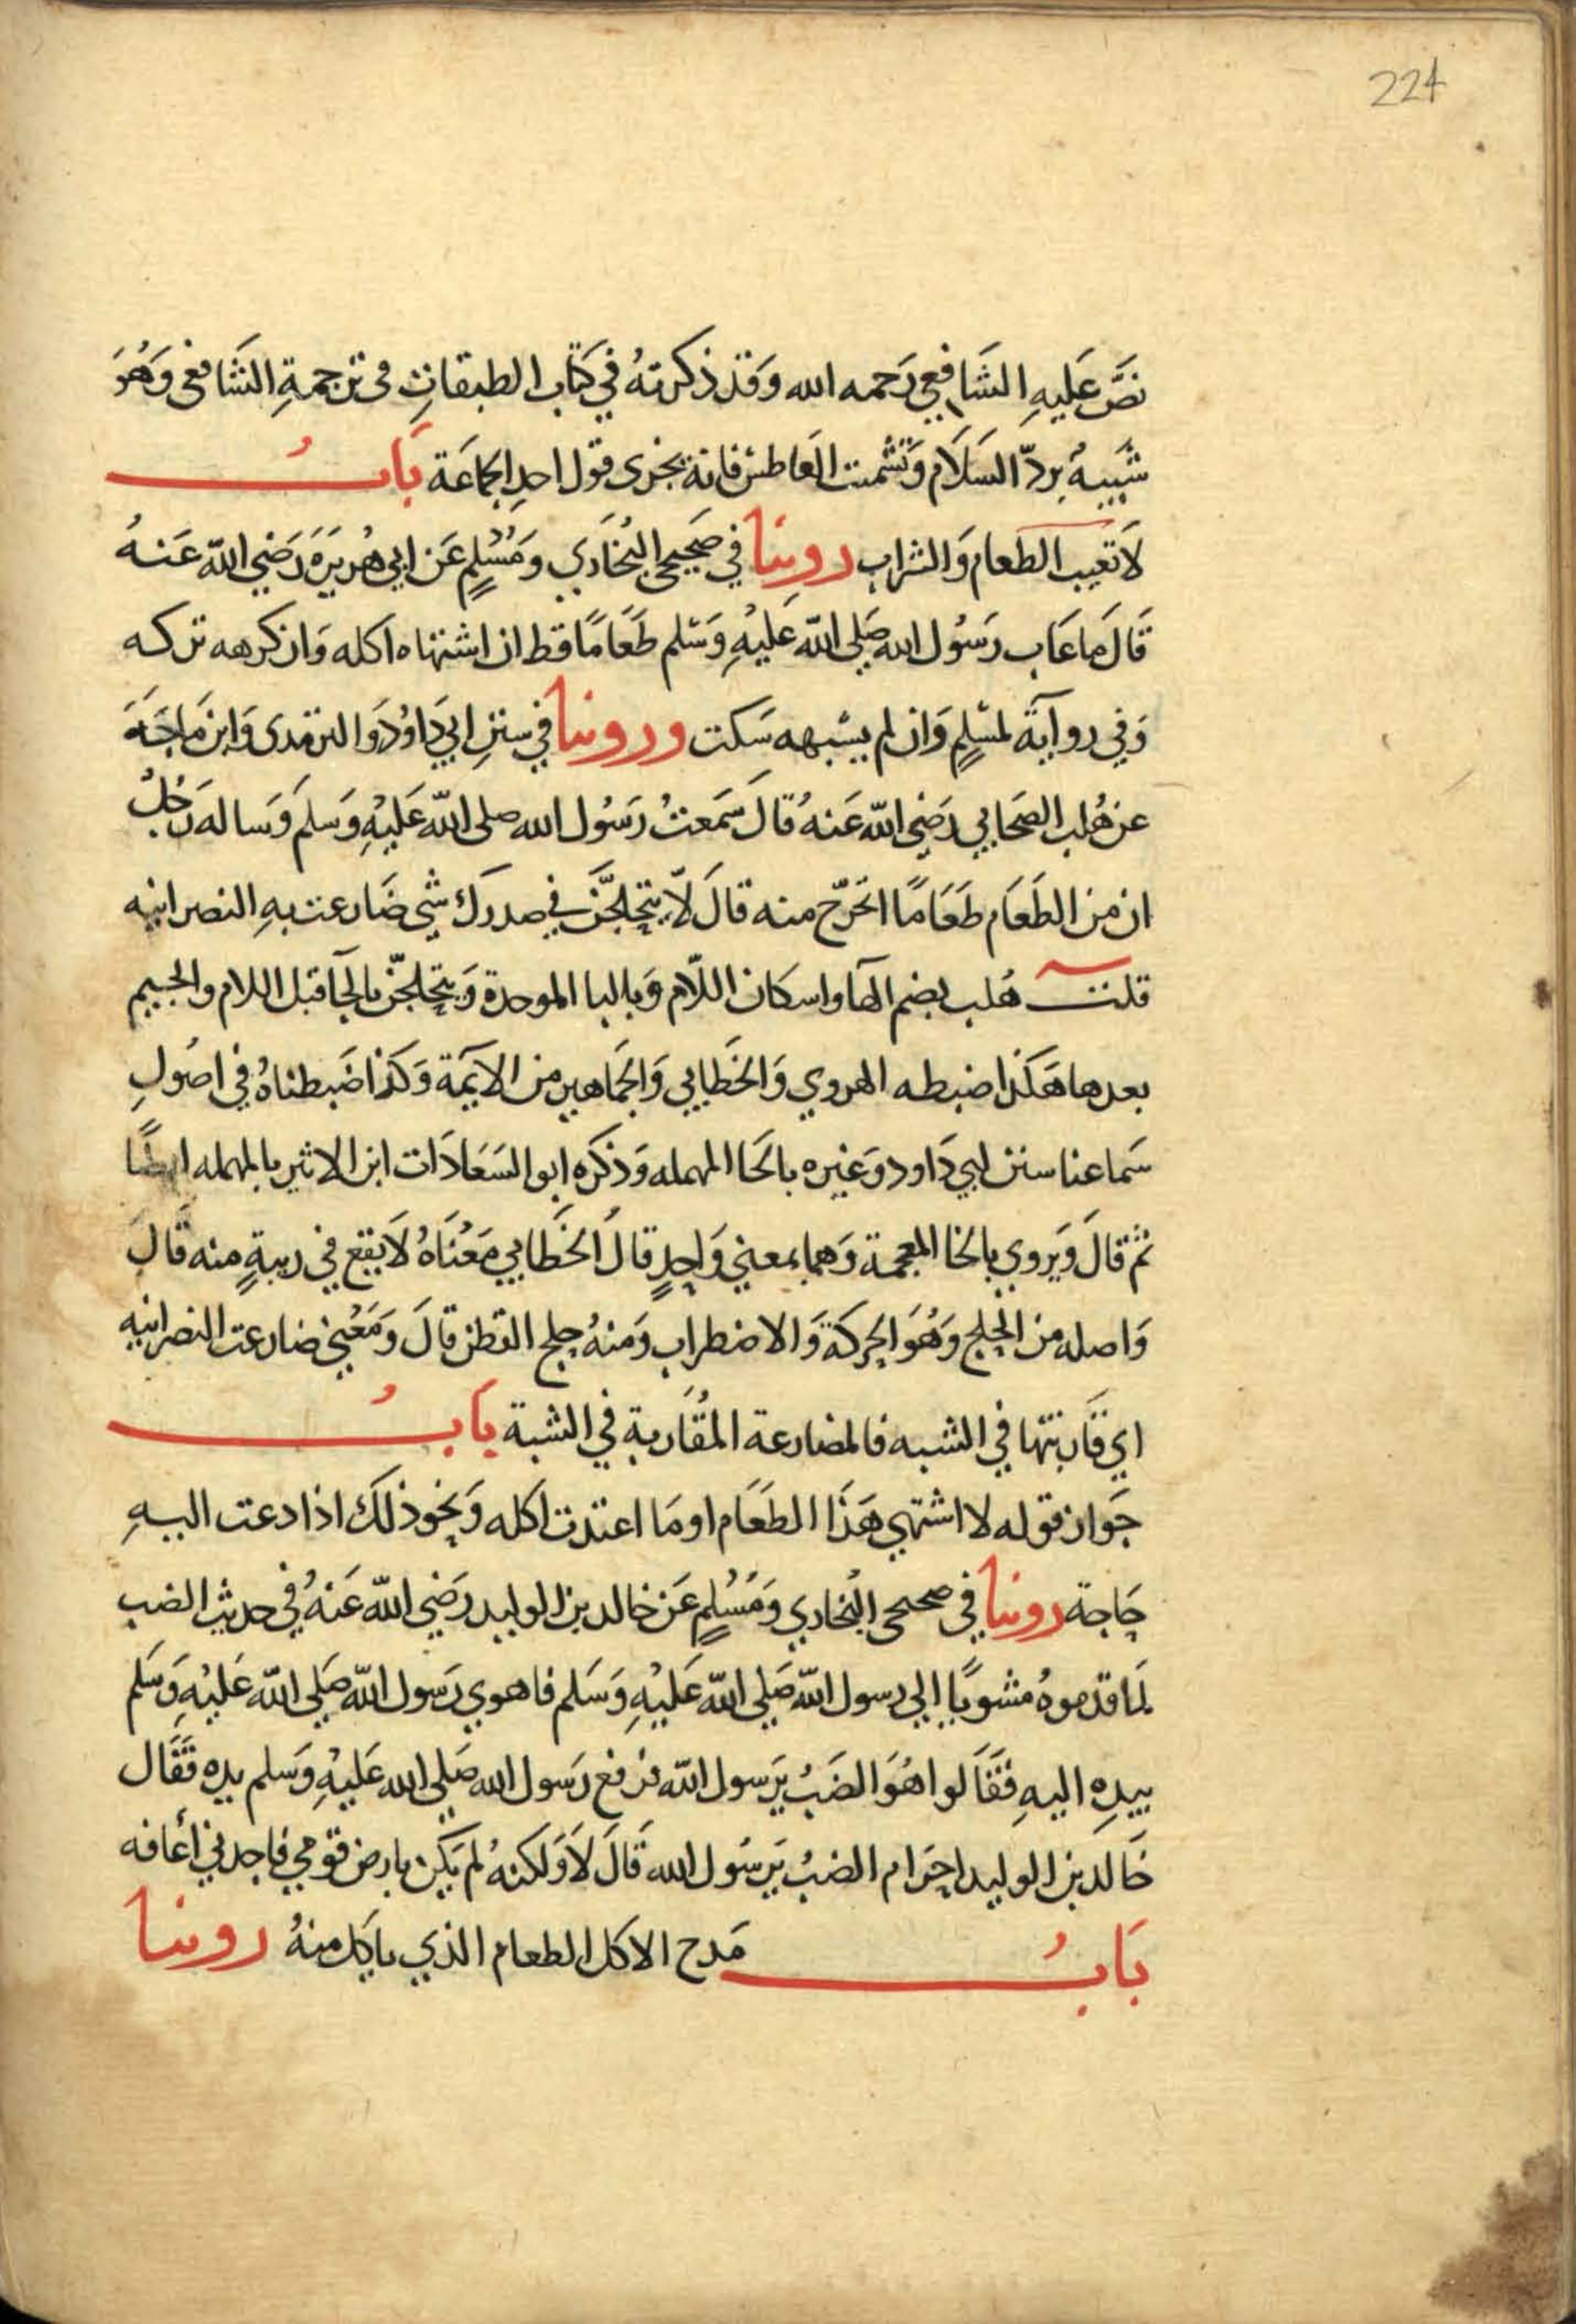 224
نصَّ عَليهِ الشَافعي رَحمه الله وَقد ذكرتهُ في كتاب الطبقاتِ في ترجمةِ الشَافعي وَهُوَ
شَبيهٌ بردّ السَلَام وَتشمت العَاطش فانهُ يجزى قول احدِ الجماعَة بَابُ
لَا تعيب الطعام وَالشراب روينا في صَحيحي البُخَاري وَمُسْلمٍ عَن ابي هُريرَةَ رَضي اللّه عَنهُ
قَالَ مَا عَاب رَسُول الله صَلى اللّه عَليْهِ وَسَلم طَعَامًا قط ان اشتهاه اكله وَان كرهه تركه
وَفي روَايَة لمسْلمٍ وَان لم يشبهه سَكت وروينا في سننِ ابي دَاوُد وَالترمدى وَابن مَاجَهَ
عن هُلب الصَحابي رَضي اللّه عَنهُ قالَ سَمَعتُ رَسُول الله صلى اللّه عَليْهِ وَسَلمَ وَساله رَجُلٌ
ان من الطَعَام طَعَامًا اتحرّج منه قالَ لَا يتحلجَّن في صدرك شي ضَارعت بهِ النصرانيه
قلت هُلب بضم الهآ واسكان اللّام وَبالبا الموحدة وَيتحلجّن بالحآ قبل اللام والجيم
بعدها هَكذا ضبطه الهروي وَالخَطابي وَالجمَاهير من الايمَة وَكذا ضَبطناهُ في اصُولِ
سَماعنا سنن ابي دَاود وَغيره بالحَا المهمله وَذكره ابو السَعَادَات ابن الاثير بالمهمله ايضًا
ثم قالَ وَيروي بالخا المعجمة وَهما بمعني وَاحدٍ قالَ الخَطابي مَعْنَاهُ لَا يقع في ريبةٍ منه قَالَ
وَاصله من الحلج وَهُوَ الحركَة وَالاضطراب وَمنهُ حلج القطن قالَ وَمَعْني ضارعت النصرانيه
اي قَاربتها في الشبه فالمضارعة المُقَاربة في الشبة بَابُ
جَواز قوله لا اشتهي هَذَا الطَعَام او مَا اعتدت اكله وَنحو ذلكَ اذا دعت اليهِ
حَاجة روينا في صحيحي البُخاري وَمُسْلمٍ عَن خالد بن الوليد رَضي اللّه عَنهُ في حديث الضب
لمَا قدموهُ مشويًا الي رسول اللّه صَلي اللّه عَليْهِ وَسَلم فاهوي رَسول اللّه صَلي اللّه عَليْهِ وَسَلم
بيدِه اليهِ فقَالوا هُوَ الضَبُ يَرسول اللّه فرفع رَسول الله صَلي الله عَليْهِ وَسَلم يده فقَال
خَالد بن الوليد احرَام الضبُ يَرسُول الله قَالَ لَا وَلكنهُ لم يَكن بارض قومي فاجدني أعافه
بَابُ مَدح الاكل الطعام الذي يَاكل منهُ روينا